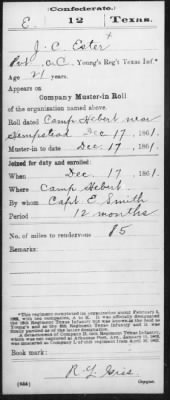 (Confederate.)
E. 12 Texas.
J. C. Ester
Pvt, Co. C, Young's Reg't Texas Inf.*
Age 21 years.
Appears on
Company Muster-in Roll
of the organization named above.
Roll dated Camp Hebert near
Hempstead Dec 17, 1861.
Muster-in to date Dec 17, 1861.
Joined for duty and enrolled:
When Dec. 17, 1861.
Where Camp Hebert.
By whom Capt. E. Smith
Period 12 months
No. of miles to rendezvous 85
Remarks:
Book mark:
R. L.
(634) Copyist.